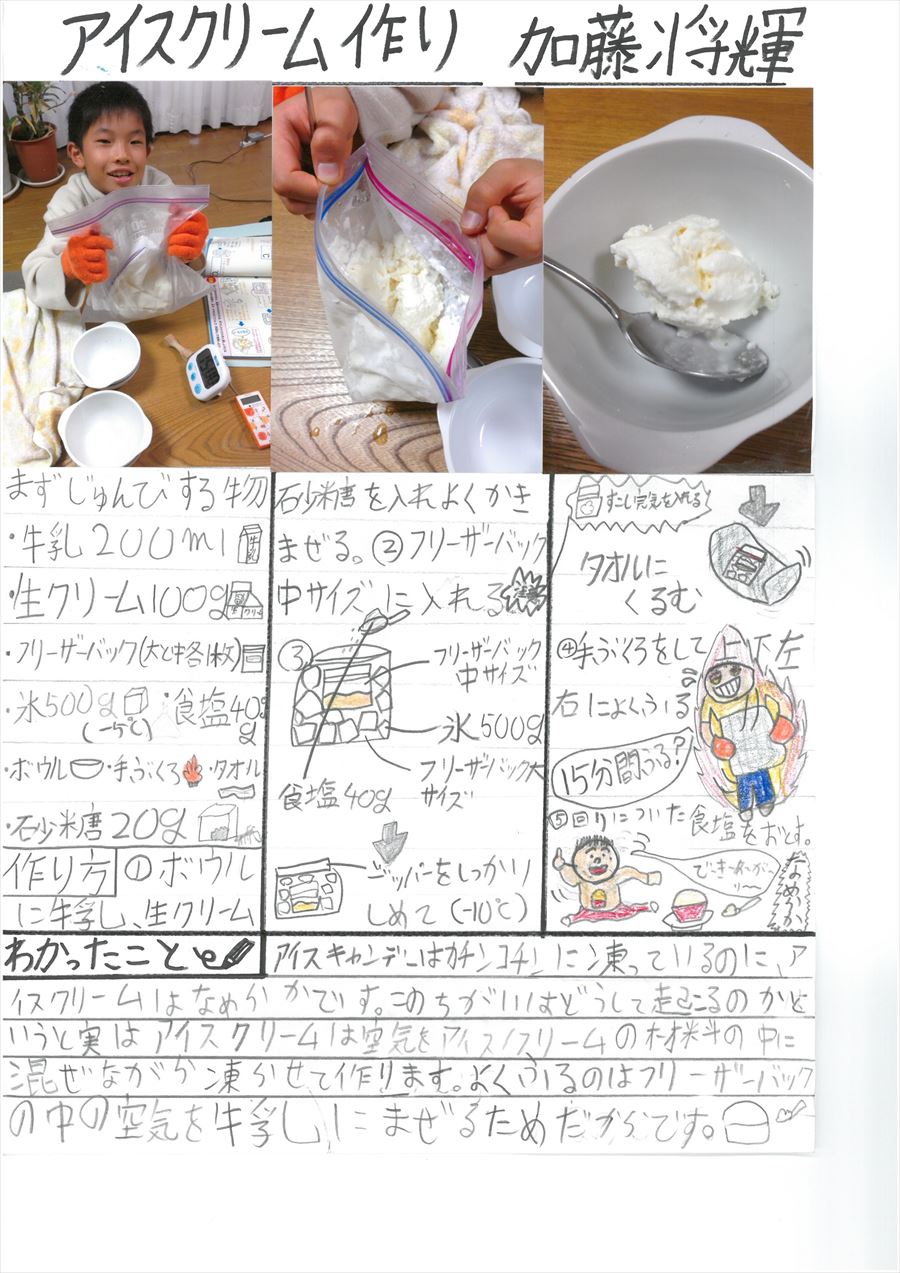 アイスクリーム作り 加藤将輝
まずじゅんびする物
・牛乳200ml
牛乳
・生クリーム100g
生クリーム
・フリーザーバック(大と中各1枚)
・氷500g ・食塩40g
(-5℃)
・ボウル ・手ぶくろ ・タオル
・砂糖20g
作り方 ①ボウル
に牛乳、生クリーム
砂糖を入れよくかき
まぜる。②フリーザーバック
中サイズに入れる
注意
③
フリーザーバック
中サイズ
氷500g
フリーザーバック大
サイズ
食塩40g
ジッパーをしっかり
しめて(-10℃)
すこし空気を入れる!
タオルに
くるむ
④手ぶくろをして上下左
右によくふる
15分間ふる?
⑤回りについた食塩をおとす。
でっきーあーがーりー
なめらか
わかったこと
アイスキャンデーはカチンコチンに凍っているのに、ア
イスクリームはなめらかです。このちがいはどうして起こるのかと
いうと実はアイスクリームは空気をアイスクリームの材料の中に
混ぜながら凍かせて作ります。よくふるのはフリーザーバック
の中の空気を牛乳にまぜるためだからです。